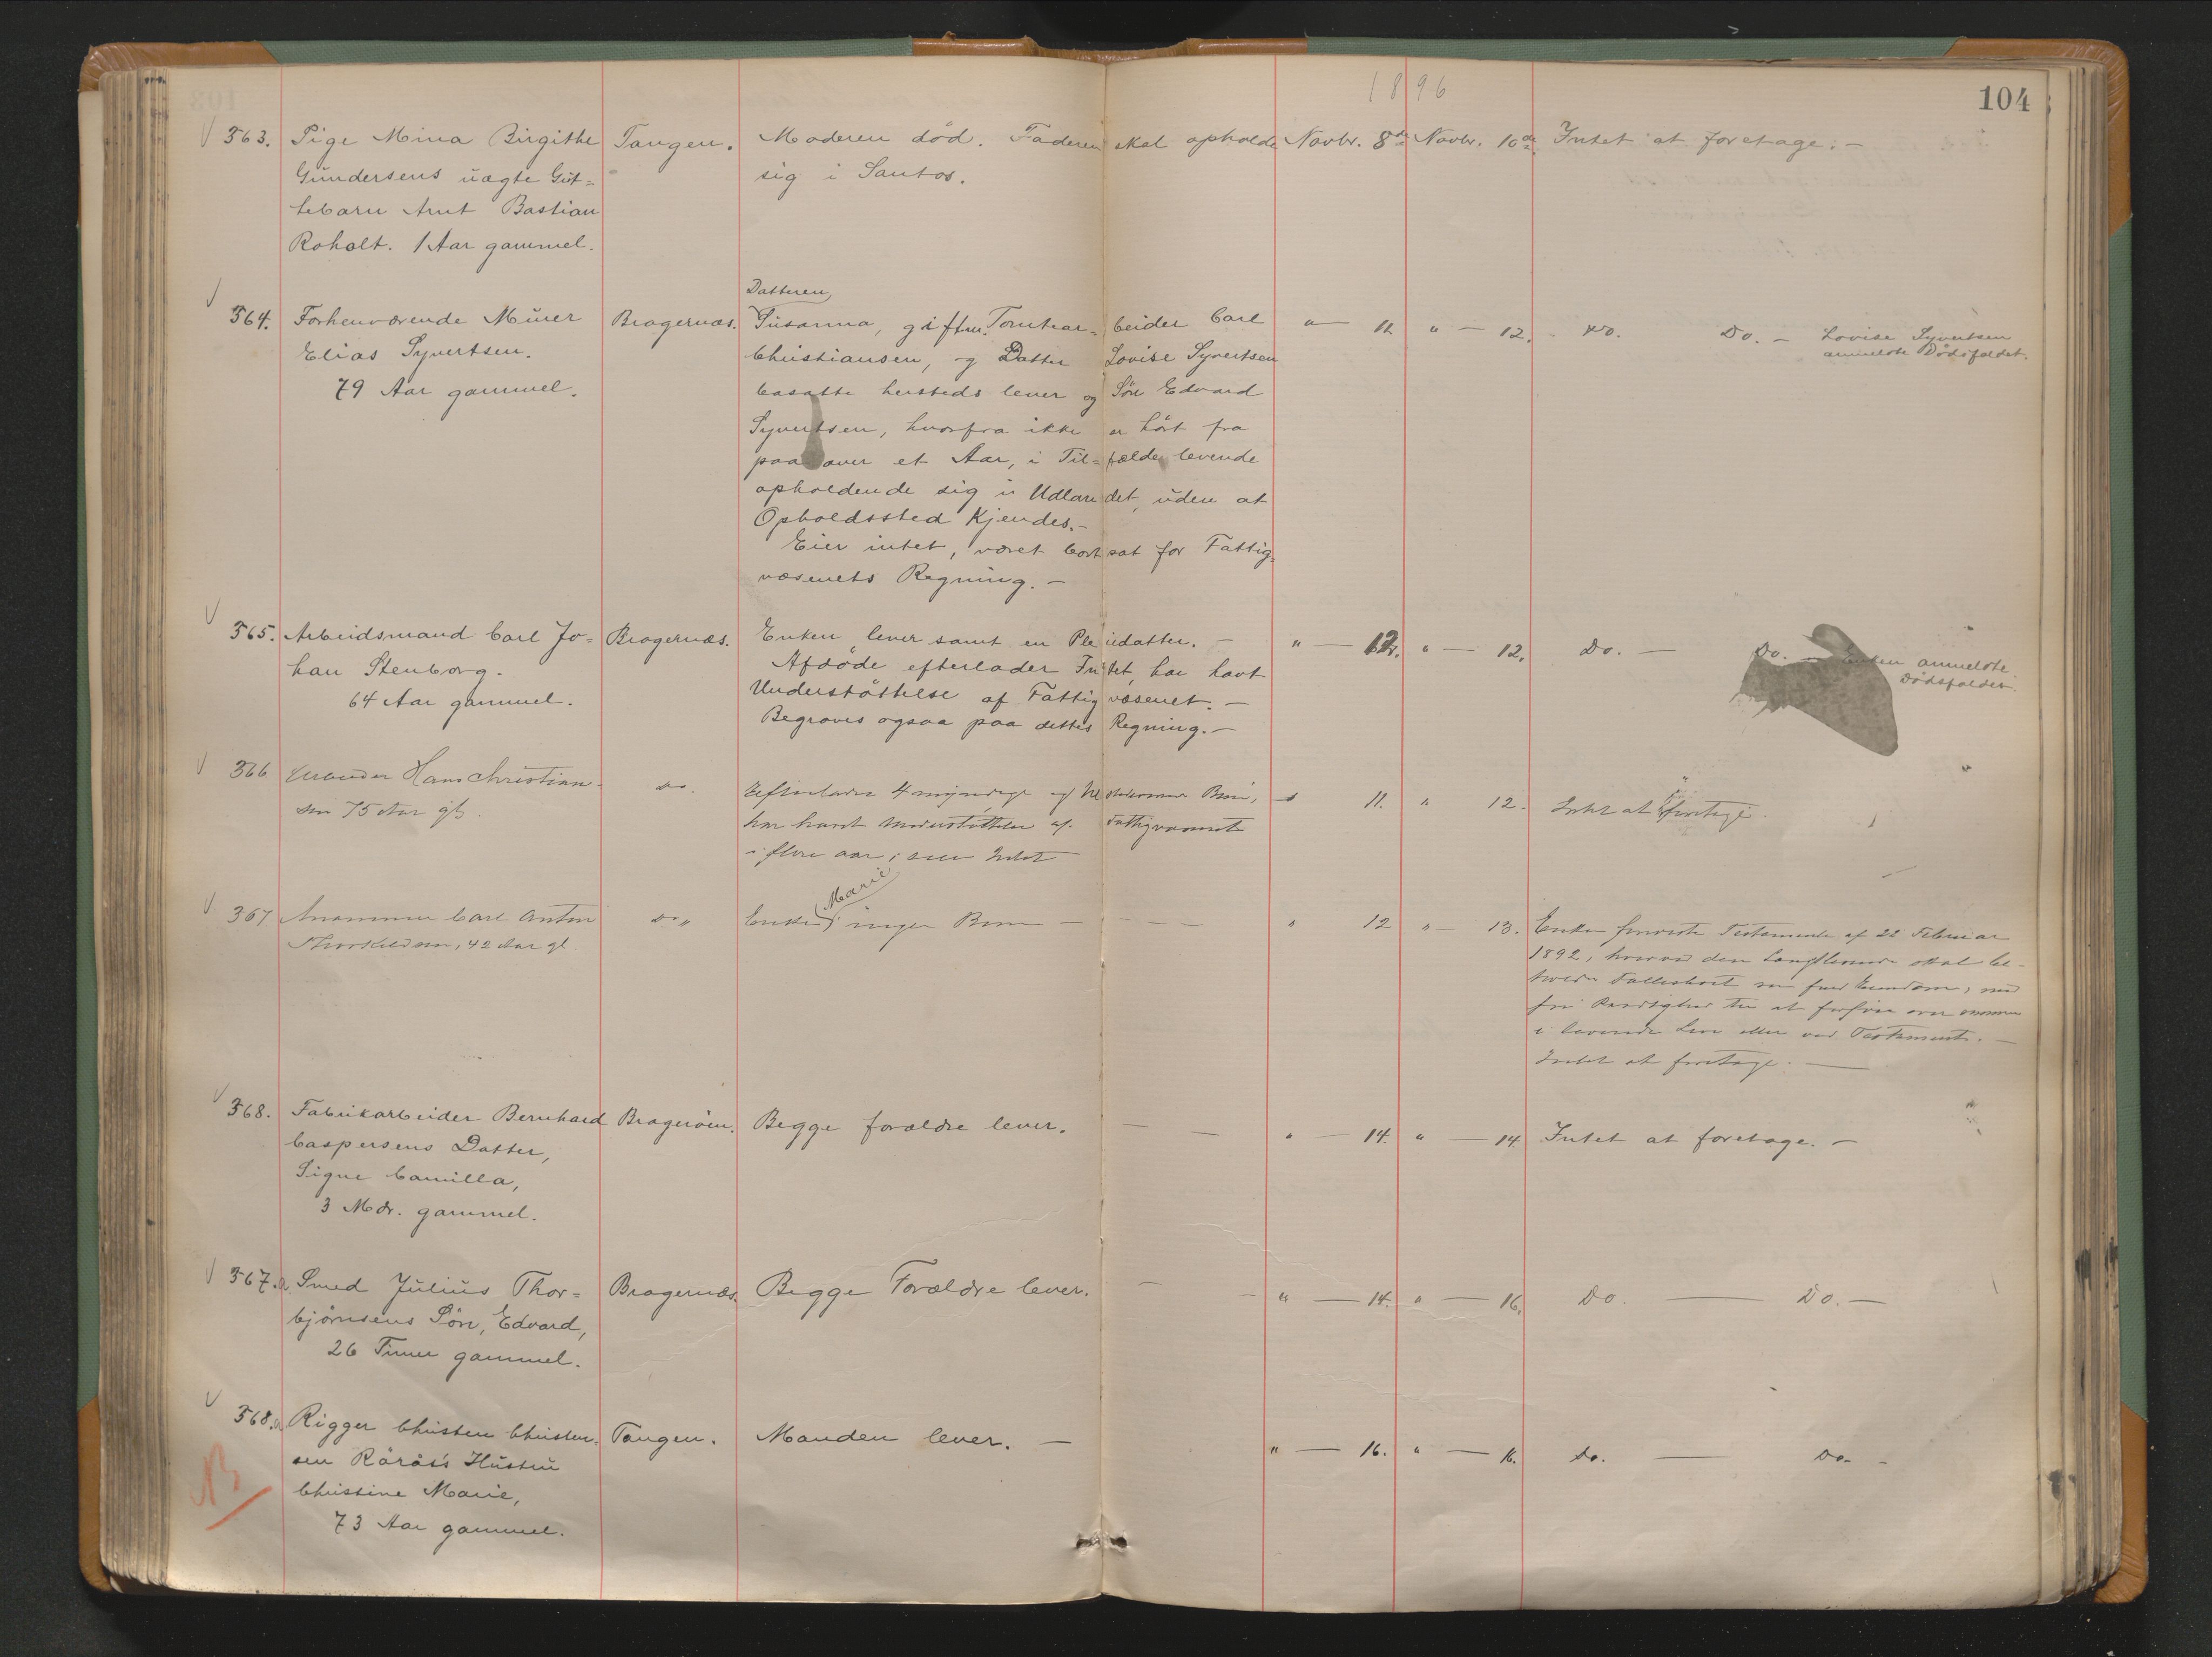 1896
104
363. Pige Mina Birgithe Tangen. Moderen död. Faderen skal opholde Novbr. 8de Novbr. 10de Intet at foretage. —
Gundersens uægte Gut-
sig i Santos.
tebarn Arnt Bastian
Roholt. 1 Aar gammel.
Datteren
364. Forhenværende Murer Bragernæs. Susanna, gift m. Tomtear- beider Carl " — 11. " — 12. Do. Do. — Lovise Syvertsen
anmeldte Dödsfaldet.
Elias Syvertsen. Christiansen, og Datter Lovise Syvertsen
79 Aar gammel. bosatte hersteds lever og Sön Edvard
Syvertsen, hvorfra ikke er hört fra
paa over et Aar, i Til- fælde levende
opholdende sig i Udlandet, uden at
Opholdssted Kjendes. —
Eier intet, været bortsat for Fattig-
væsenets Regning. —
365. Arbeidsmand Carl Jo- Bragernæs. Enken lever samt en Pleiedatter. — " — 12. " — 12. Do. — Do. — Enken anmeldte
Dödsfaldet.
han Stenborg. Afdöde efterlader Intet, har havt
64 Aar gammel. Understöttelse af Fattigvæsenet. —
Begraves ogsaa paa dettes Regning. —
366 Hans Christian- do. Efterlader 4 myndige og Börn, " 11. " 12. Intet at foretage.
sen 75 Aar gl. har havt Understöttelse af Fattigvæsenet
i flere aar; eier Intet
Marie
367 Carl Anton do " Enke, ingen Börn — — " 12 " — 13. Enken foreviste Testamente af 22 Februar
Thorkildsen, 42 Aar gl. 1892, hvorved den Længstlevende skal be-
holde Fællesboet som fuld Eiendom, med
fri Raadighed til at forföie over samme
i levende Live eller ved Testament. —
Intet at foretage. —
368. Fabrikarbeider Bernhard Bragerøen. Begge forældre lever. — — " — 14. " — 14. Intet at foretage. —
Caspersens Datter,
Signe Camilla,
3 Mdr. gammel.
367.a. Smed Julius Thor- Bragernæs. Begge Forældre lever. — — " — 14. " — 16. Do. — Do. —
björnsens Sön, Edvard,
26 Timer gammel.
368.a. Rigger Christen Christen- Tangen. Manden lever. — " — 16. " — 16. Do. — Do. —
sen Röråss Hustru
Christine Marie,
73 Aar gammel.